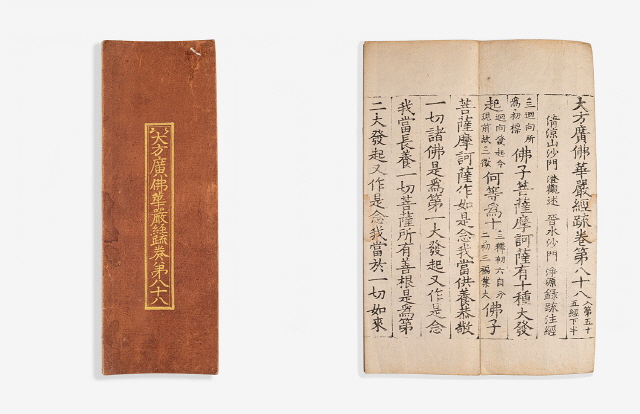 大方廣佛華嚴經䟽卷第八十八
大方廣佛華嚴經䟽卷第八十八 入第五十五經下半
清涼山沙門 澄觀述 晉水沙門 淨源錄䟽注經
三迴向所為初標 佛子菩薩摩訶薩有十種大發
起 迴向發起今現前故三徵 何等為十 三釋初六自分二初三福業大 佛子
菩薩摩訶薩作如是念我當供養恭敬
一切諸佛是為第一大發起又作是念
我當長養一切菩薩所有善根是為第
二大發起又作是念我當於一切如來